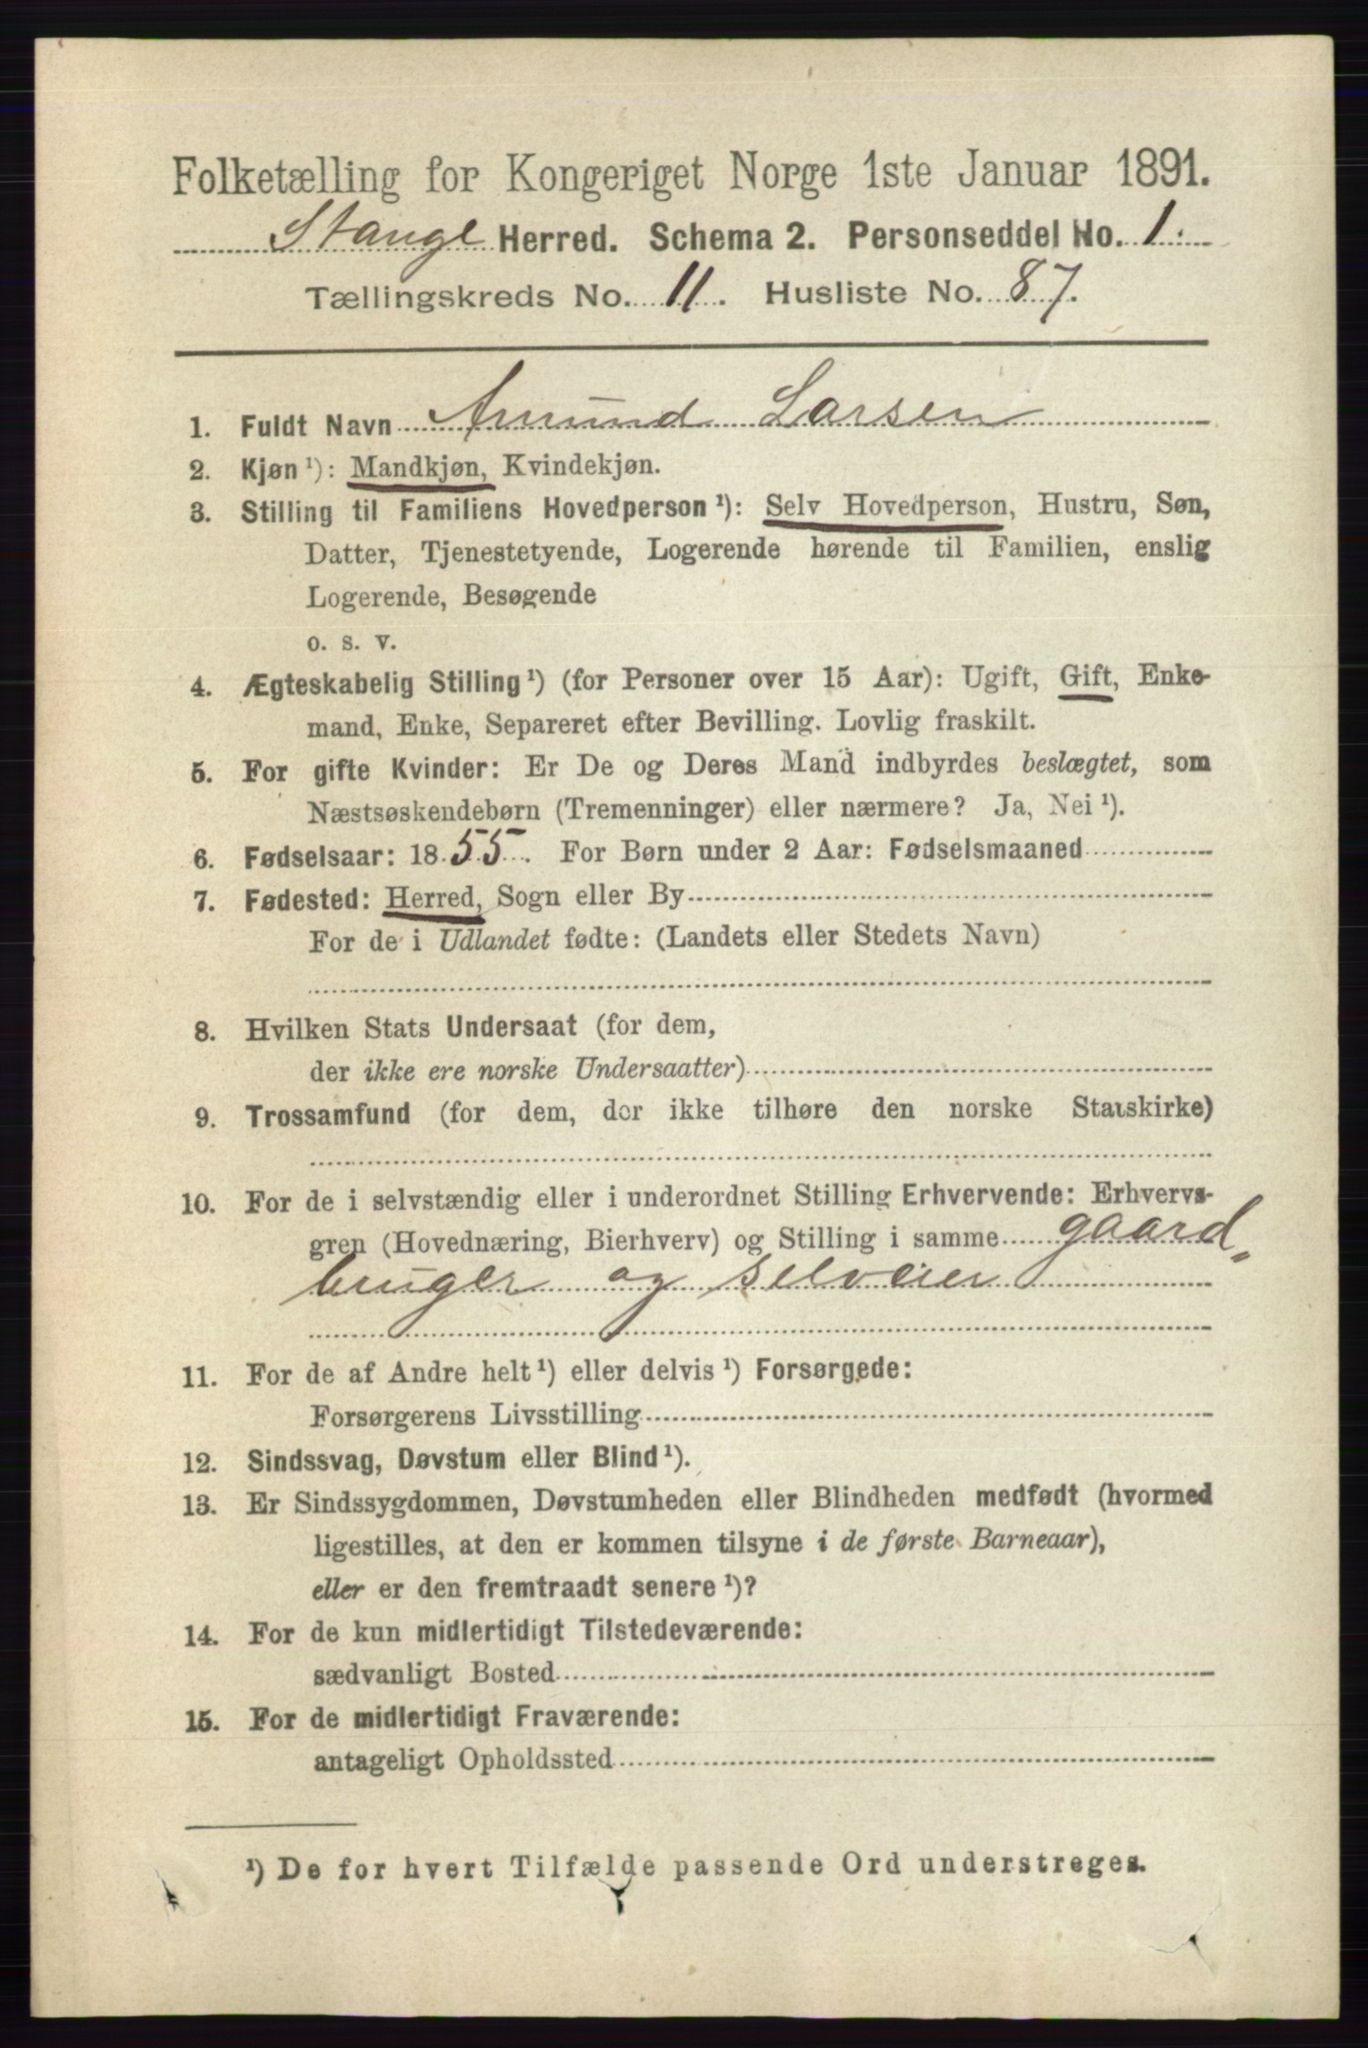 Folketælling for Kongeriget Norge 1ste Januar 1891.
Stange Herred. Schema 2. Personseddel No. 1.
Tællingskreds No. 11. Husliste No. 87.
1. Fuldt Navn Amund Larsen
2. Kjøn ¹): Mandkjøn, Kvindekjøn.
3. Stilling til Familiens Hovedperson ¹): Selv Hovedperson, Hustru, Søn,
Datter, Tjenestetyende, Logerende hørende til Familien, enslig
Logerende, Besøgende
o. s. v.
4. Ægteskabelig Stilling ¹) (for Personer over 15 Aar): Ugift, Gift, Enke-
mand, Enke, Separeret efter Bevilling. Lovlig fraskilt.
5. For gifte Kvinder: Er De og Deres Mand indbyrdes beslægtet, som
Næstsøskendebørn (Tremenninger) eller nærmere? Ja, Nei ¹).
6. Fødselsaar: 1855. For Børn under 2 Aar: Fødselsmaaned
7. Fødested: Herred, Sogn eller By
For de i Udlandet fødte: (Landets eller Stedets Navn)
8. Hvilken Stats Undersaat (for dem,
der ikke ere norske Undersaatter)
9. Trossamfund (for dem, der ikke tilhøre den norske Statskirke)
10. For de i selvstændig eller i underordnet Stilling Erhvervende: Erhvervs-
gren (Hovednæring, Bierhverv) og Stilling i samme gaard„
bruger og selveier
11. For de af Andre helt ¹) eller delvis ¹) Forsørgede:
Forsørgerens Livsstilling
12. Sindssvag, Døvstum eller Blind ¹).
13. Er Sindssygdommen, Døvstumheden eller Blindheden medfødt (hvormed
ligestilles, at den er kommen tilsyne i de første Barneaar),
eller er den fremtraadt senere ¹)?
14. For de kun midlertidigt Tilstedeværende:
sædvanligt Bosted
15. For de midlertidigt Fraværende:
antageligt Opholdssted
¹) De for hvert Tilfælde passende Ord understreges.